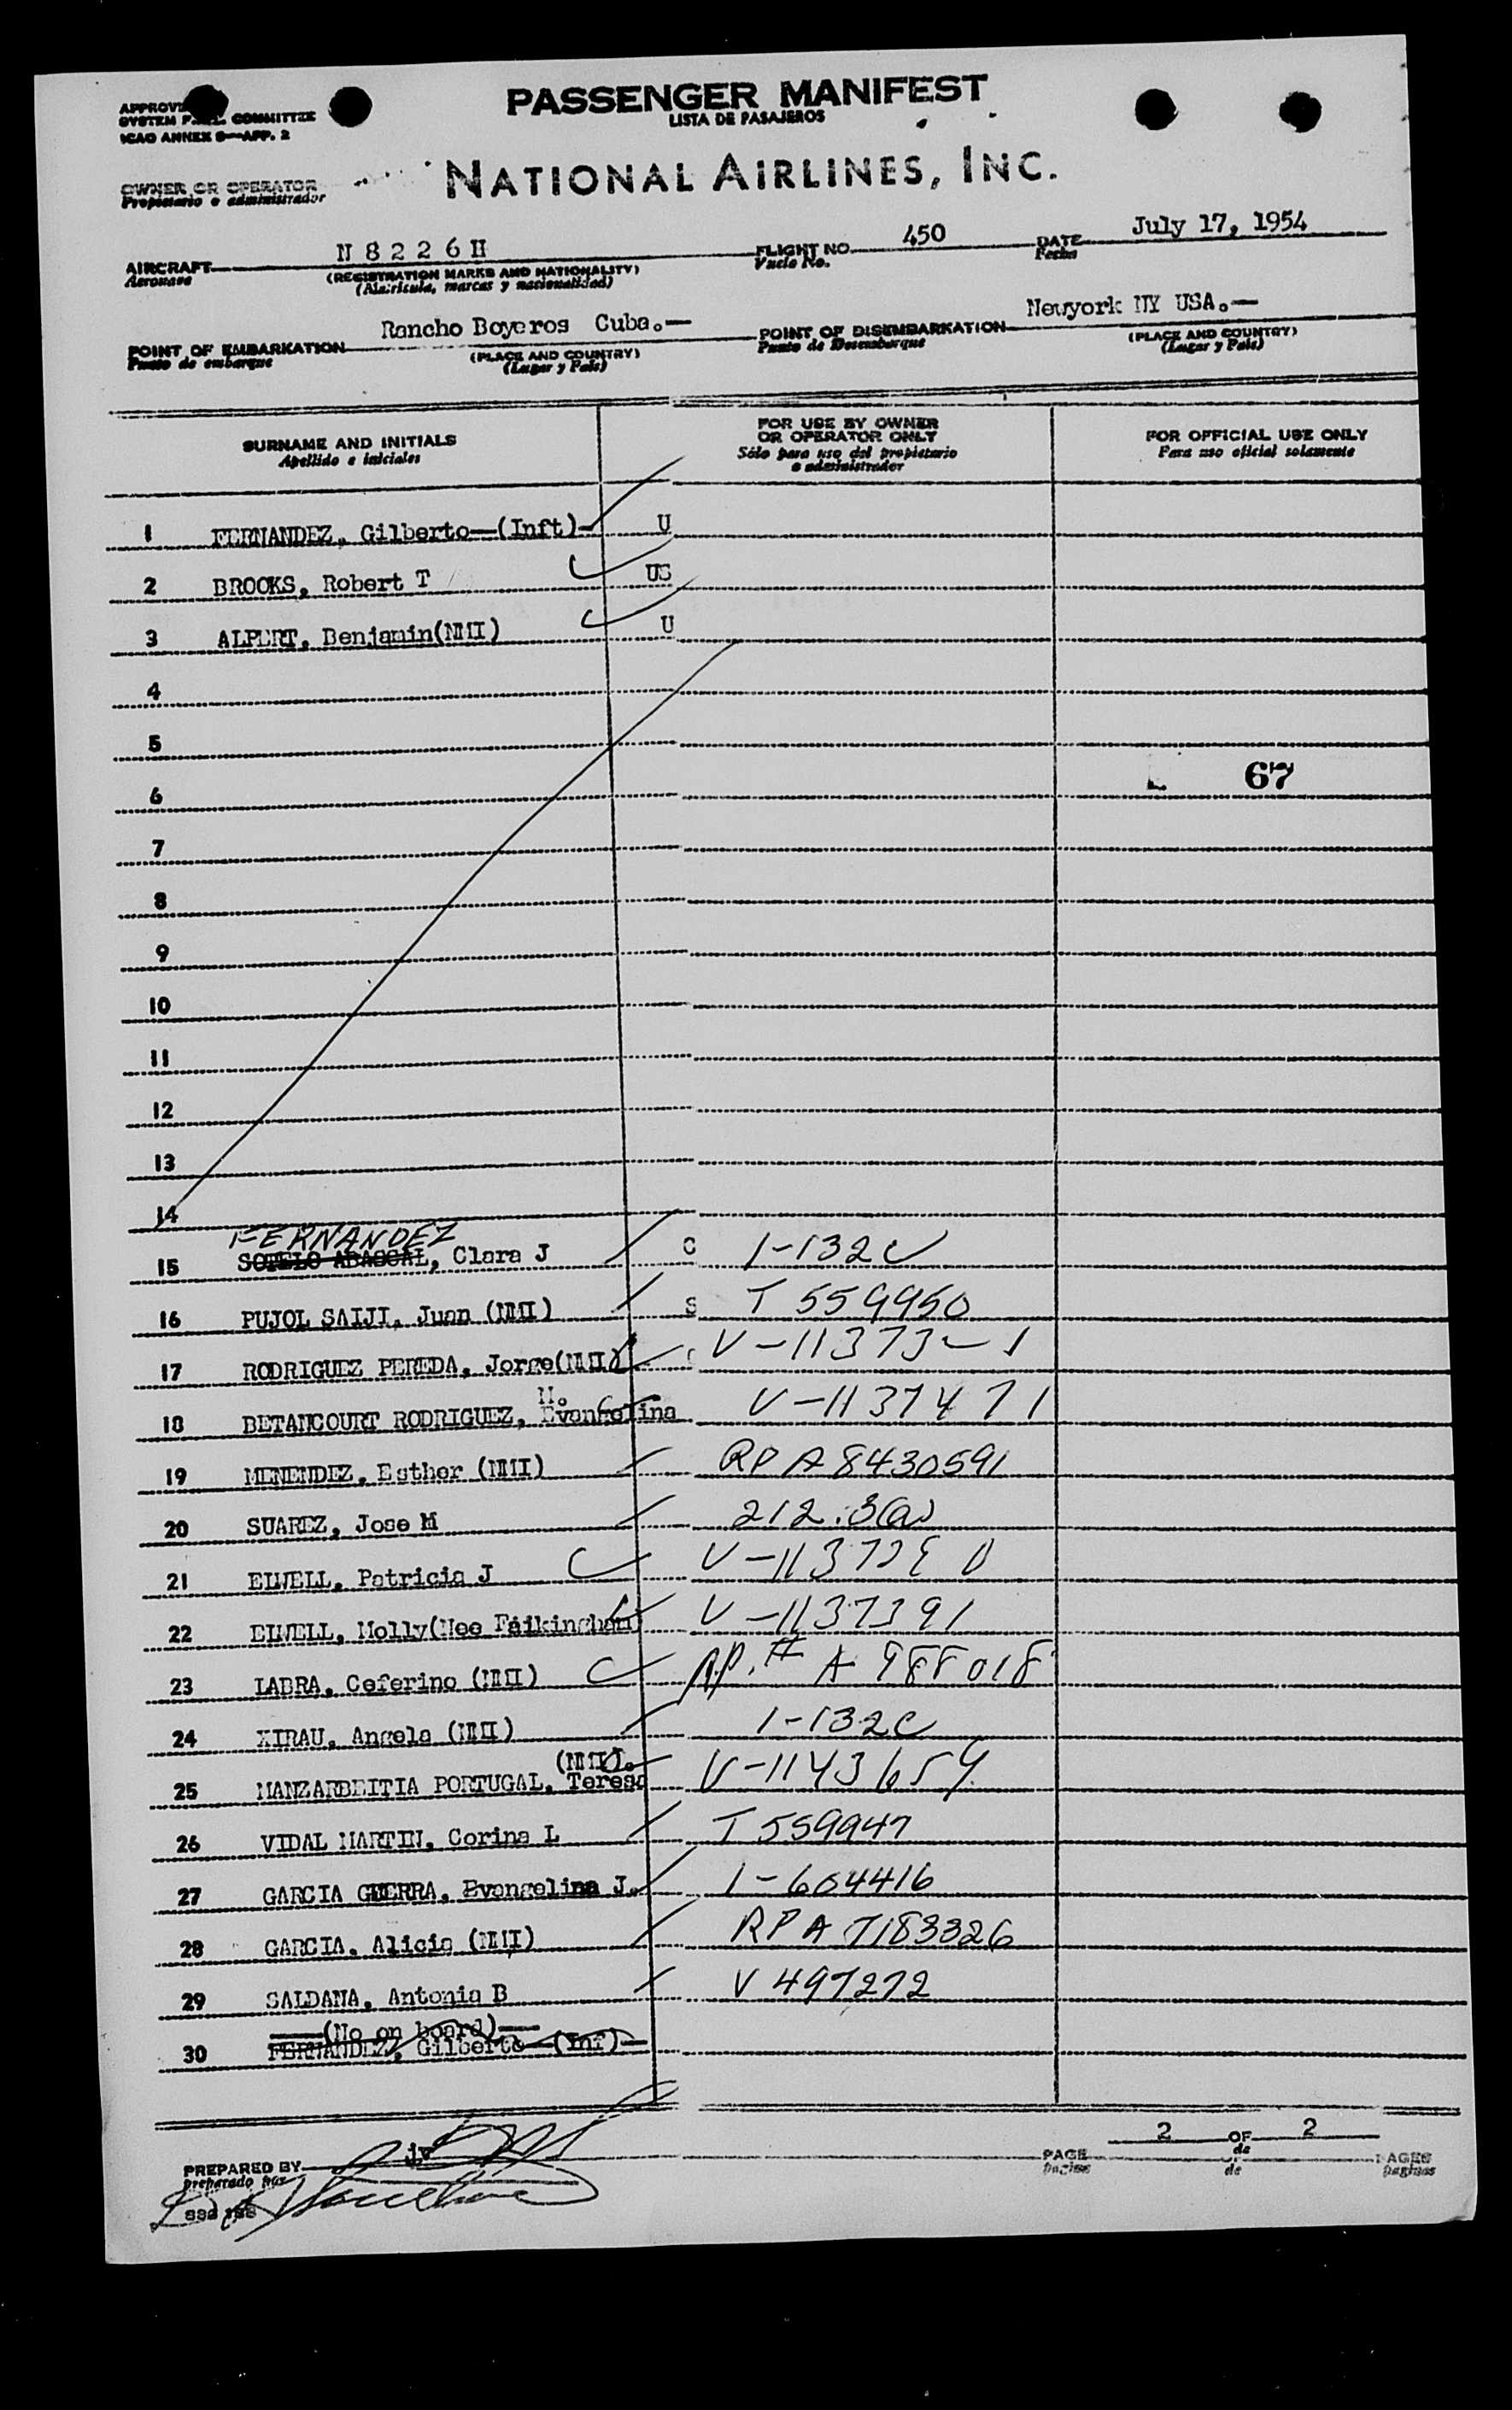 PASSENGER MANIFEST
LISTA DE PASAJEROS
SYSTEM COMMITTEE
ICAO ANNEX 9—APP. 2
OWNER OR OPERATOR
Propietario o administrador
NATIONAL AIRLINES, INC.
AIRCRAFT N 8 2 2 6 H FLIGHT NO. 450 DATE July 17, 1954
Aeronave (REGISTRATION MARKS AND NATIONALITY) Vuelo No. Fecha
(Matricula, marcas y nacionalidad)
POINT OF EMBARKATION Rancho Boyeros Cuba.— POINT OF DISEMBARKATION Newyork NY USA.—
Punto de embarque (PLACE AND COUNTRY) Punto de Desembarque (PLACE AND COUNTRY)
(Lugar y País) (Lugar y País)
SURNAME AND INITIALS FOR USE BY OWNER OR OPERATOR ONLY FOR OFFICIAL USE ONLY
Apellido e iniciales Sólo para uso del propietario o administrador Para uso oficial solamente
1 FERNANDEZ, Gilberto—(Inft)— U
2 BROOKS, Robert T US
3 ALPERT, Benjamin(NMI) U
4
5
6 67
7
8
9
10
11
12
13
14
FERNANDEZ
15 SOTELO ABASCAL, Clara J C 1-132C
16 PUJOL SAIJI, Juan (NMI) S T 559950
17 RODRIGUEZ PEREDA, Jorge(NMI)
18 BETANCOURT RODRIGUEZ, Evangelina V-1137471
19 MENENDEZ, Esther (NMI) RP A8430591
20 SUAREZ, Jose M 212.3(a)
21 ELWELL, Patricia J
22 ELWELL, Molly(Nee V-1137391
23 LABRA, Ceferino (NMI) RP.# A 988018
24 XIRAU, Angela (NMI) 1-132C
(NMI)
25 MANZARBEITIA PORTUGAL, Teresa V-1143654
26 VIDAL MARTIN, Corina L T 559947
27 GARCIA GUERRA, Evangelina J. 1-604416
28 GARCIA, Alicia (NMI) RP A 7183326
29 SALDANA, Antonia B V 497272
—(No on board)—
30 FERNANDEZ, Gilberto—(Inf)—
PREPARED BY jv PAGE 2 OF 2 PAGES
preparado por pagina de paginas